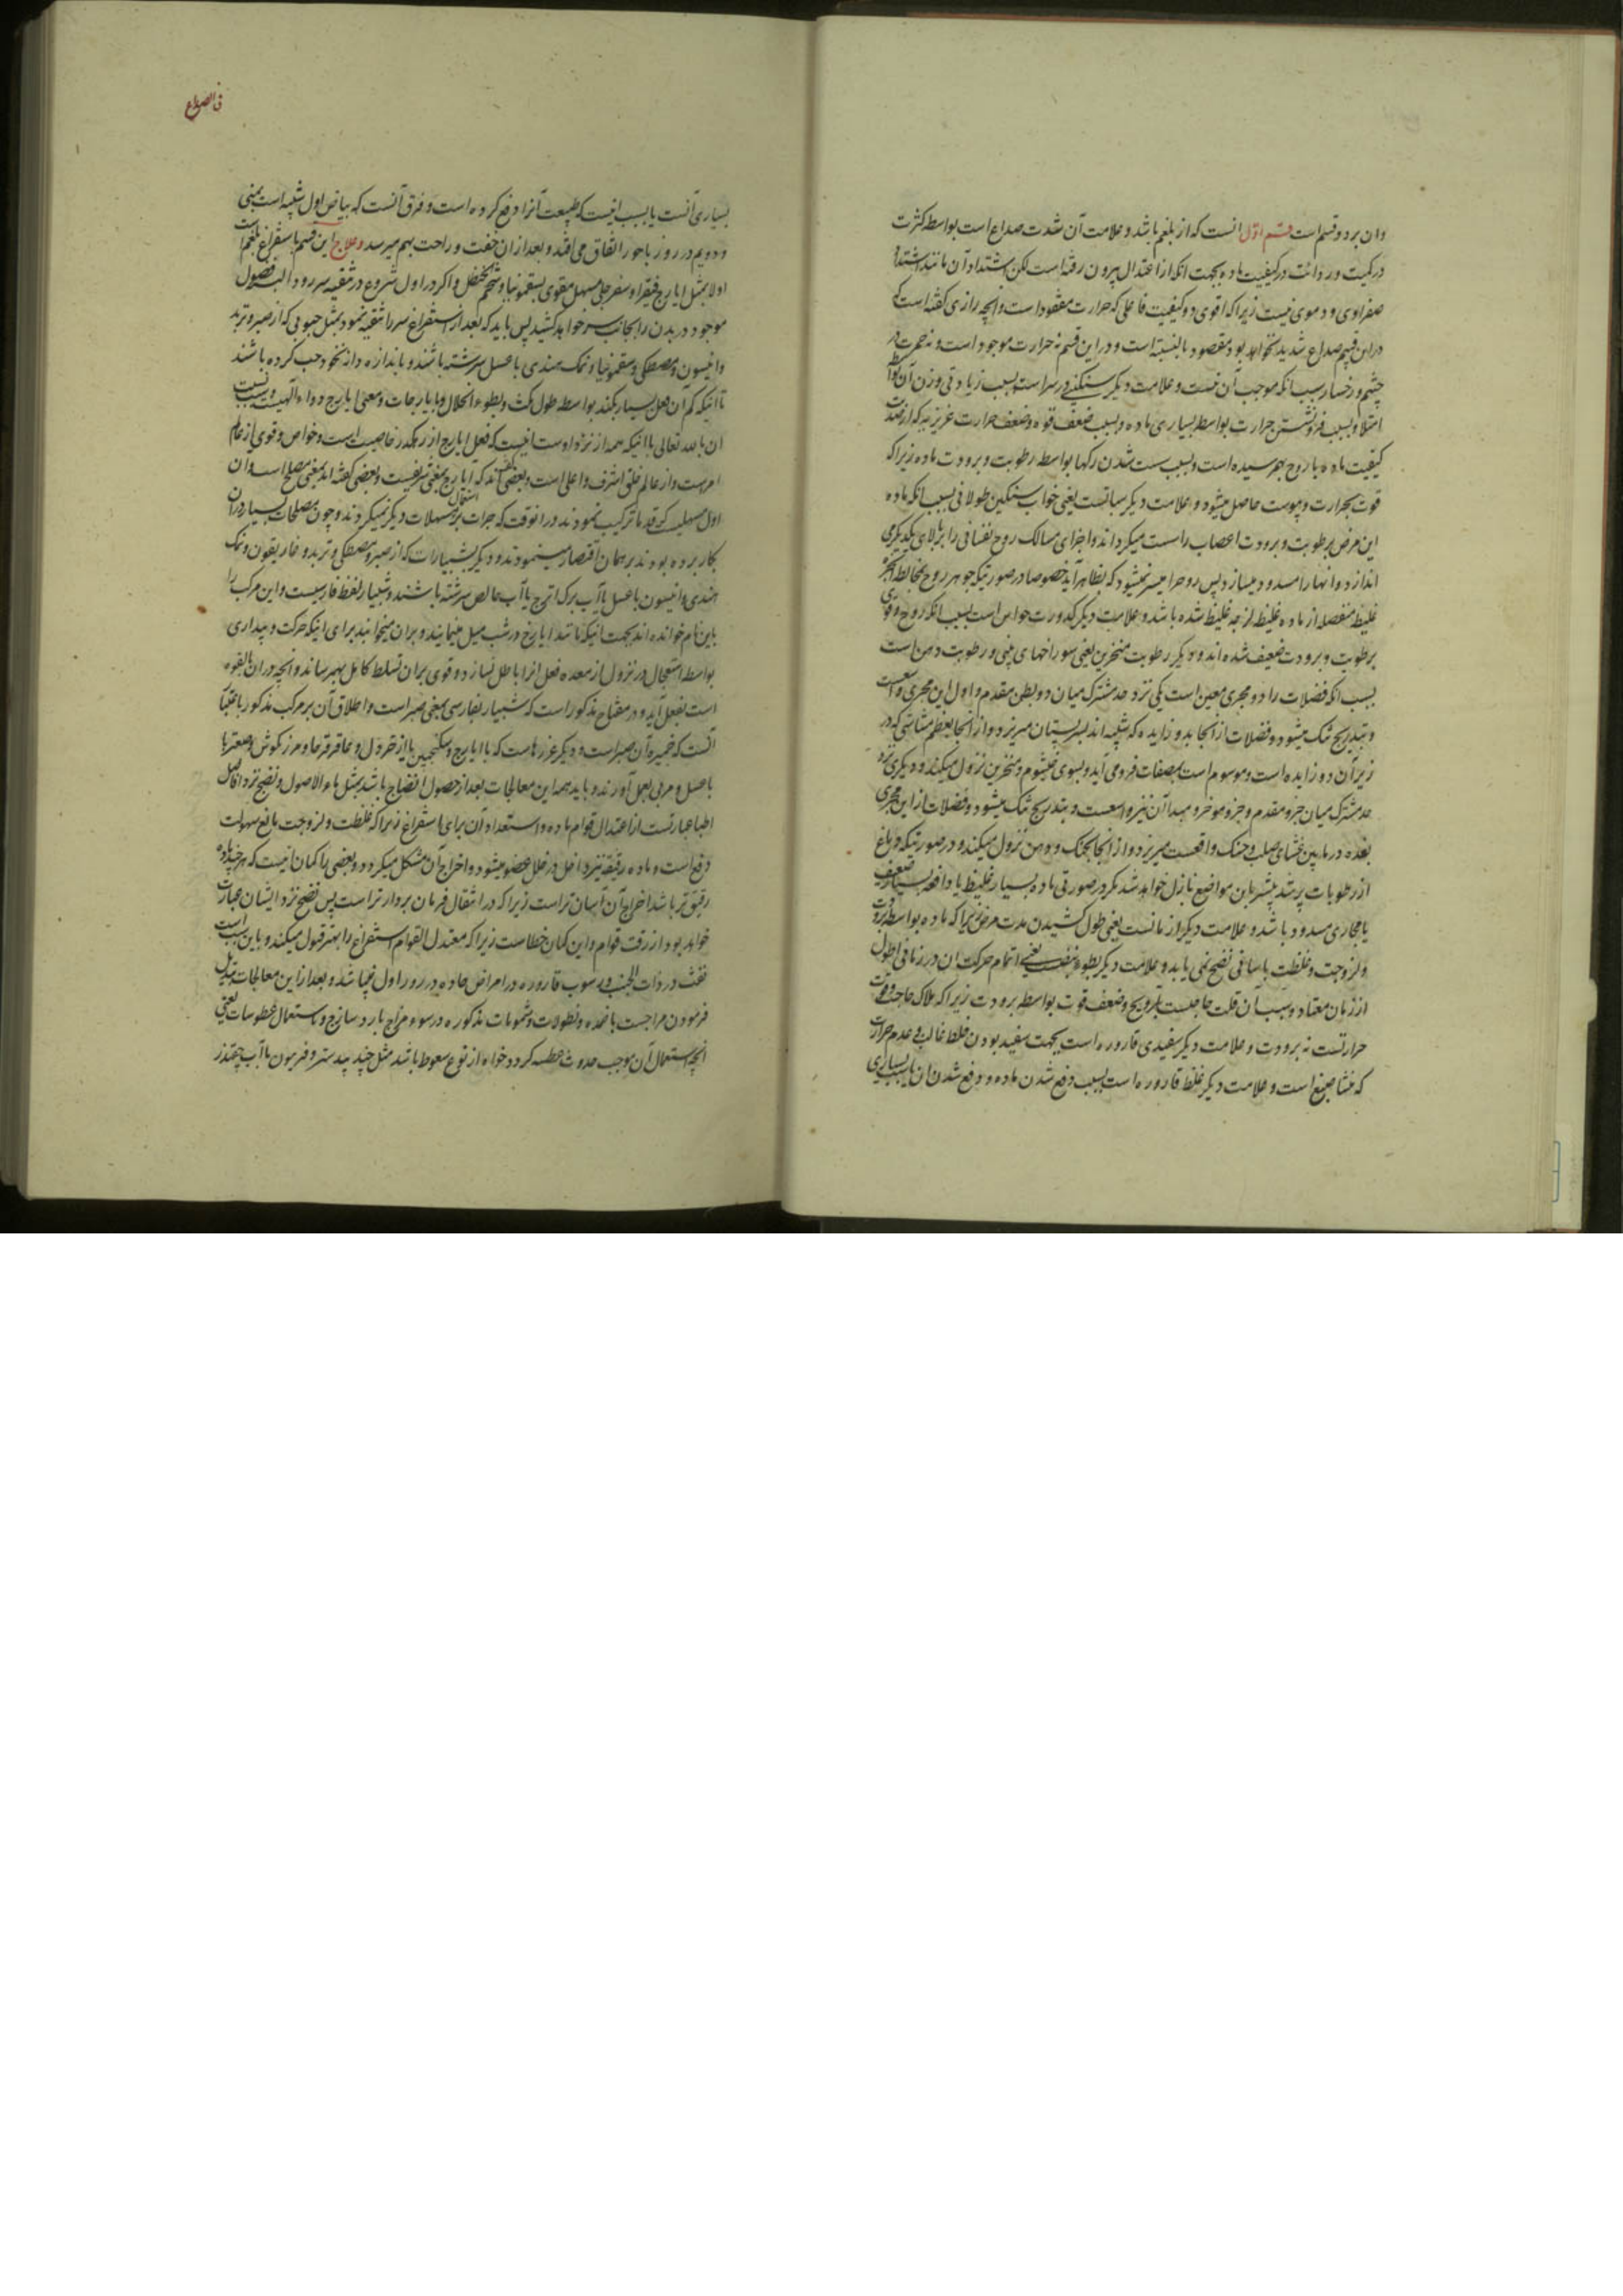 وان بر دو قسم است قسم اول انست که از بلغم باشد و علامت آن شدت صداع است بواسطه کثرت
در کمیت ور دائت در کیفیت ماده بجهت انکه از اعتدال بیرون رفته است لکن اشتداد آن مانند اشتداد
صفراوی و دموی نیست زیرا که اقوی دو کیفیت فاعلی که حرارت مفقود است و انچه رازی کفته است که
در این قسم صداع شدید نخواهد بود مقصود بالنسبته است و در این قسم نه حرارت موجود است و نه حمرت در
چشم و رخسار بسبب انکه موجب آن نیست و علامت دیکر سنکینی در سر است بسبب زیادتی وزن آن بواسطه
امتلا و بسبب فرو نشستن حرارت بواسطه بسیاری ماده و بسبب ضعف قوه و ضعف حرارت غریزیه که از ضدیت
کیفیت ماده با روح بهم رسیده است و بسبب سست شدن رکها بواسطه رطوبت و برودت ماده زیرا که
قوت بحرارت و یبوست حاصل میشود و علامت دیکر سباتست یعنی خواب سنکین طولانی بسبب انکه ماده
این مرض برطوبت و برودت اعصاب را سست میکرداند و اجزای مسالک روح نفسانی را بر بالای یکدیکر می
اندازد و انها را مسدود میسازد پس روح را میسر نمیشود که بظاهر آید خصوصا در صورتیکه جوهر روح بمخالطه ابخره
غلیظ منفصله از ماده غلیظ لزجه غلیظ شده باشد و علامت دیکر کدورت حواس است بسبب انکه روح و قوی
برطوبت و برودت ضعیف شده اند و دیکر رطوبت منخرین یعنی سوراخهای بینی و رطوبت دهن است
بسبب انکه فضلات را دو مجری معین است یکی نزد حد مشترک میان دو بطن مقدم و اول این مجری واسعست
و بتدریج تنک میشود و فضلات از انجا بدو زایده که شبیه اند بسر پستان میریزد و از انجا بعظم مشاشی که در
زیر آن دو زایده است و موسوم است بمصفات فرو می آید و بسوی خیشوم و منخرین نزول میکند و دیکری نزد
حد مشترک میان جزو مقدم و جزو موخر و مبدا آن نیز واسعست و بتدریج تنک میشود و فضلات از این مجری
بغده در مابین غشای صلب و حنک واقعست میریزد و از انجا بحنک و دهن نزول میکند و در صورتیکه دماغ
از رطوبات پر شد بیشتر بان مواضع نازل خواهد شد مکر در صورتی ماده بسیار غلیظ یا دافعه بسیار ضعیف
یا مجاری مسدود باشد و علامت دیکر از مانست یعنی طول کشیدن مدت مرض زیرا که ماده بواسطه برودت
و لزوجت و غلظت باسانی نضج نمی یابد و علامت دیکر بطوء نبض یعنی اتمام حرکت ان در زمانی اطول
از زمان معتاد و سبب آن قلت حاجت بترویح و ضعف قوت بواسطه برودت زیرا که ملاک حاجت و قوت
حرارتست نه برودت و علامت دیکر سفیدی قاروره است بجهت سفید بودن خلط غالب و عدم حرارت
که منشا صبغ است و علامت دیکر غلظ قاروره است بسبب دفع شدن ماده و دفع شدن ان یا بسبب بسیاری
فی الصداع
بسیاری آنست یا بسبب اینست که طبیعت آنرا دفع کرده است و فرق آنست که بیاض اول شبیه است بمنی
و دویم در روز باحور اتفاق می افتد و بعد از ان خفت و راحت بهم میرسد و علاج این قسم باستفراغ بلغم است
اولا بمثل ایارج فیقرا و سفرجلی مسهل مقوی بسقمونیا و شحم حنظل و اکر در اول شروع در تنقیه سر رود البته فضول
موجود در بدن را بجانب سر خواهد کشید پس باید که بعد از استفراغ سر را تنقیه نمود بمثل حبوبی که از صبر و تربد
و انیسون و مصطکی و سقمونیا و نمک هندی با عسل سرشته باشند و باندازه دانه نخود حب کرده باشند
تا اینکه کم آن فعل بسیار بکند بواسطه طول مکث و بطوء انحلال و بایارجات و معنی ایارج دواء الهیست و سبب نسبت
ان بالله تعالی با انیکه همه از نزد اوست انیست که فعل ایارج از رهکذر خاصیت است و خواص و قوی از عالم
امرست و از عالم خلق اشرف و اعلی است و بعضی کفته اند که ایارج بمعنی شریفست و بعضی کفته اند بمعنی مصلح است و ان
اول مسهلیست که قدما ترکیب نمودند در انوقت که جرات بر استعمال مسهلات دیکر نمیکردند و چون مصلحات بسیار در ان
بکار برده بودند بر همان اقتصار مینمودند و دیکر بشبیارات که از صبر و مصطکی و تربد و غاریقون و نمک
هندی و انیسون با عسل یا آب برک اترج یا آب خالص سرشته باشند و شبیار لفظ فارسیست و این مرکب را
باین نام خوانده اند بجهت انیکه مانند ایارج در شب میل مینمایند و بران میخوابند برای انیکه حرکت و بیداری
بواسطه استعجال در نزول از معده فعل انرا باطل نسازد و قوی بران تسلط کامل بهم رساند و انچه در ان بالقوه
است بفعل آید و در مفتاح مذکور است که شبیار بفارسی بمعنی صبر است و اطلاق آن بر مرکب مذکور باعتبار
آنست که خمیره آن صبر است و دیکر غرغرهاست که با ایارج و سکنجبین یا از خردل و عاقرقرحا و مرزنکوش و صعتر با
با عسل و مری بعمل آورند و باید همه این معالجات بعد از حصول انضاج باشد بمثل ماء الاصول و نضج نزد افاضل
اطبا عبارتست از اعتدال قوام ماده و استعداد آن برای استفراغ زیرا که غلظت و لزوجت مانع سهولت
دفع است و ماده رقیقه نیز داخل در خلل عضو میشود و اخراج آن مشکل میکردد و بعضی را کمان انیست که هر چند ماده
رقیق تر باشد اخراج آن آسان تر است زیرا که در انتقال فرمان بردار تر است پس نضج نزد ایشان عبارت
خواهد بود از رقت قوام و این کمان خطاست زیرا که معتدل القوام استفراغ را بهتر قبول میکند و باین سبب است
نفث در ذات الجنب و رسوب قاروره در امراض حاده در روز اول نمیباشد و بعد از این معالجات تبدیل
فرمودن مزاجست باضمده و نطولات و شمومات مذکوره در سوء مزاج بارد ساذج و باستعمال عطوسات یعنی
انچه استعمال آن موجب حدوث عطسه کردد خواه از نوع سعوط باشد مثل جند بیدستر و فربیون با آب چقندر